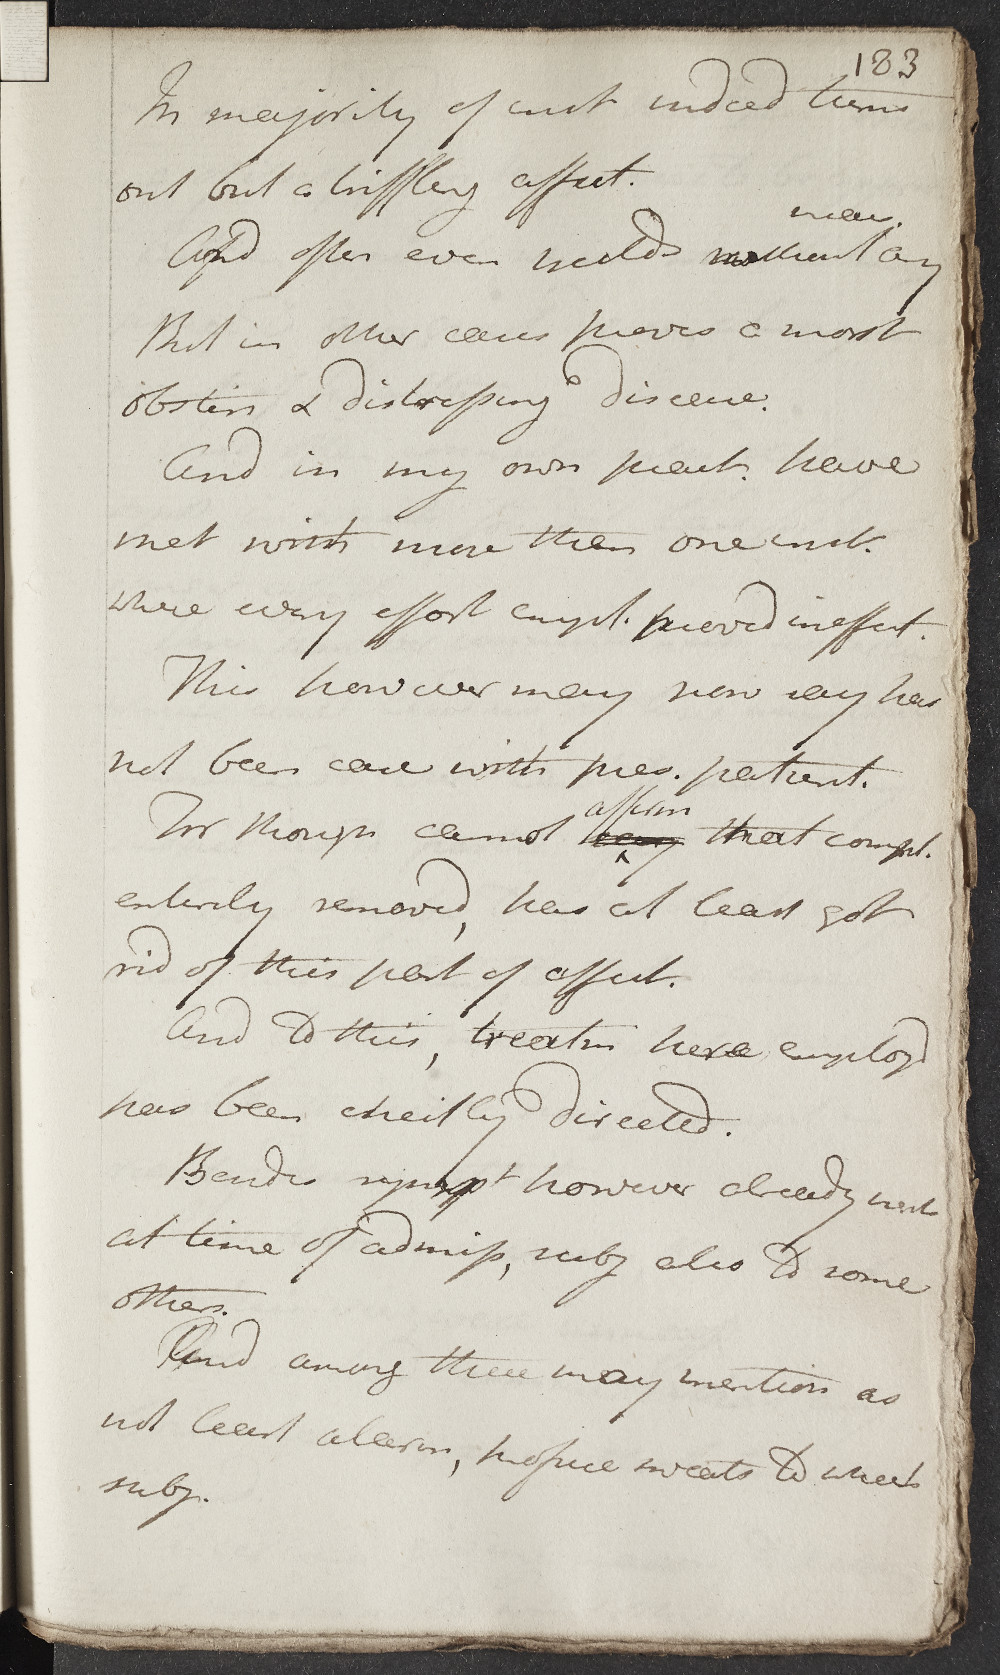 183
In majority of inst indeed turns
out but a triffling affect.
And often even yields without any mean.
But in other cases proves a most
obstin & distressing disease.
And in my own pract. have
met with more than one inst.
where every effort empl. proved ineffect.
This however may now say has
not been case with pres. patient.
For though cannot say affirm that compl.
enterily removed, has at least got
rid of this part of affect.
And to this, treatm here employd
has been cheifly directed.
Besides sympt however already ment
at time of admiss, subj also to some
others.
And among these may mention as
not least alarm, profuse sweats to which
subj.